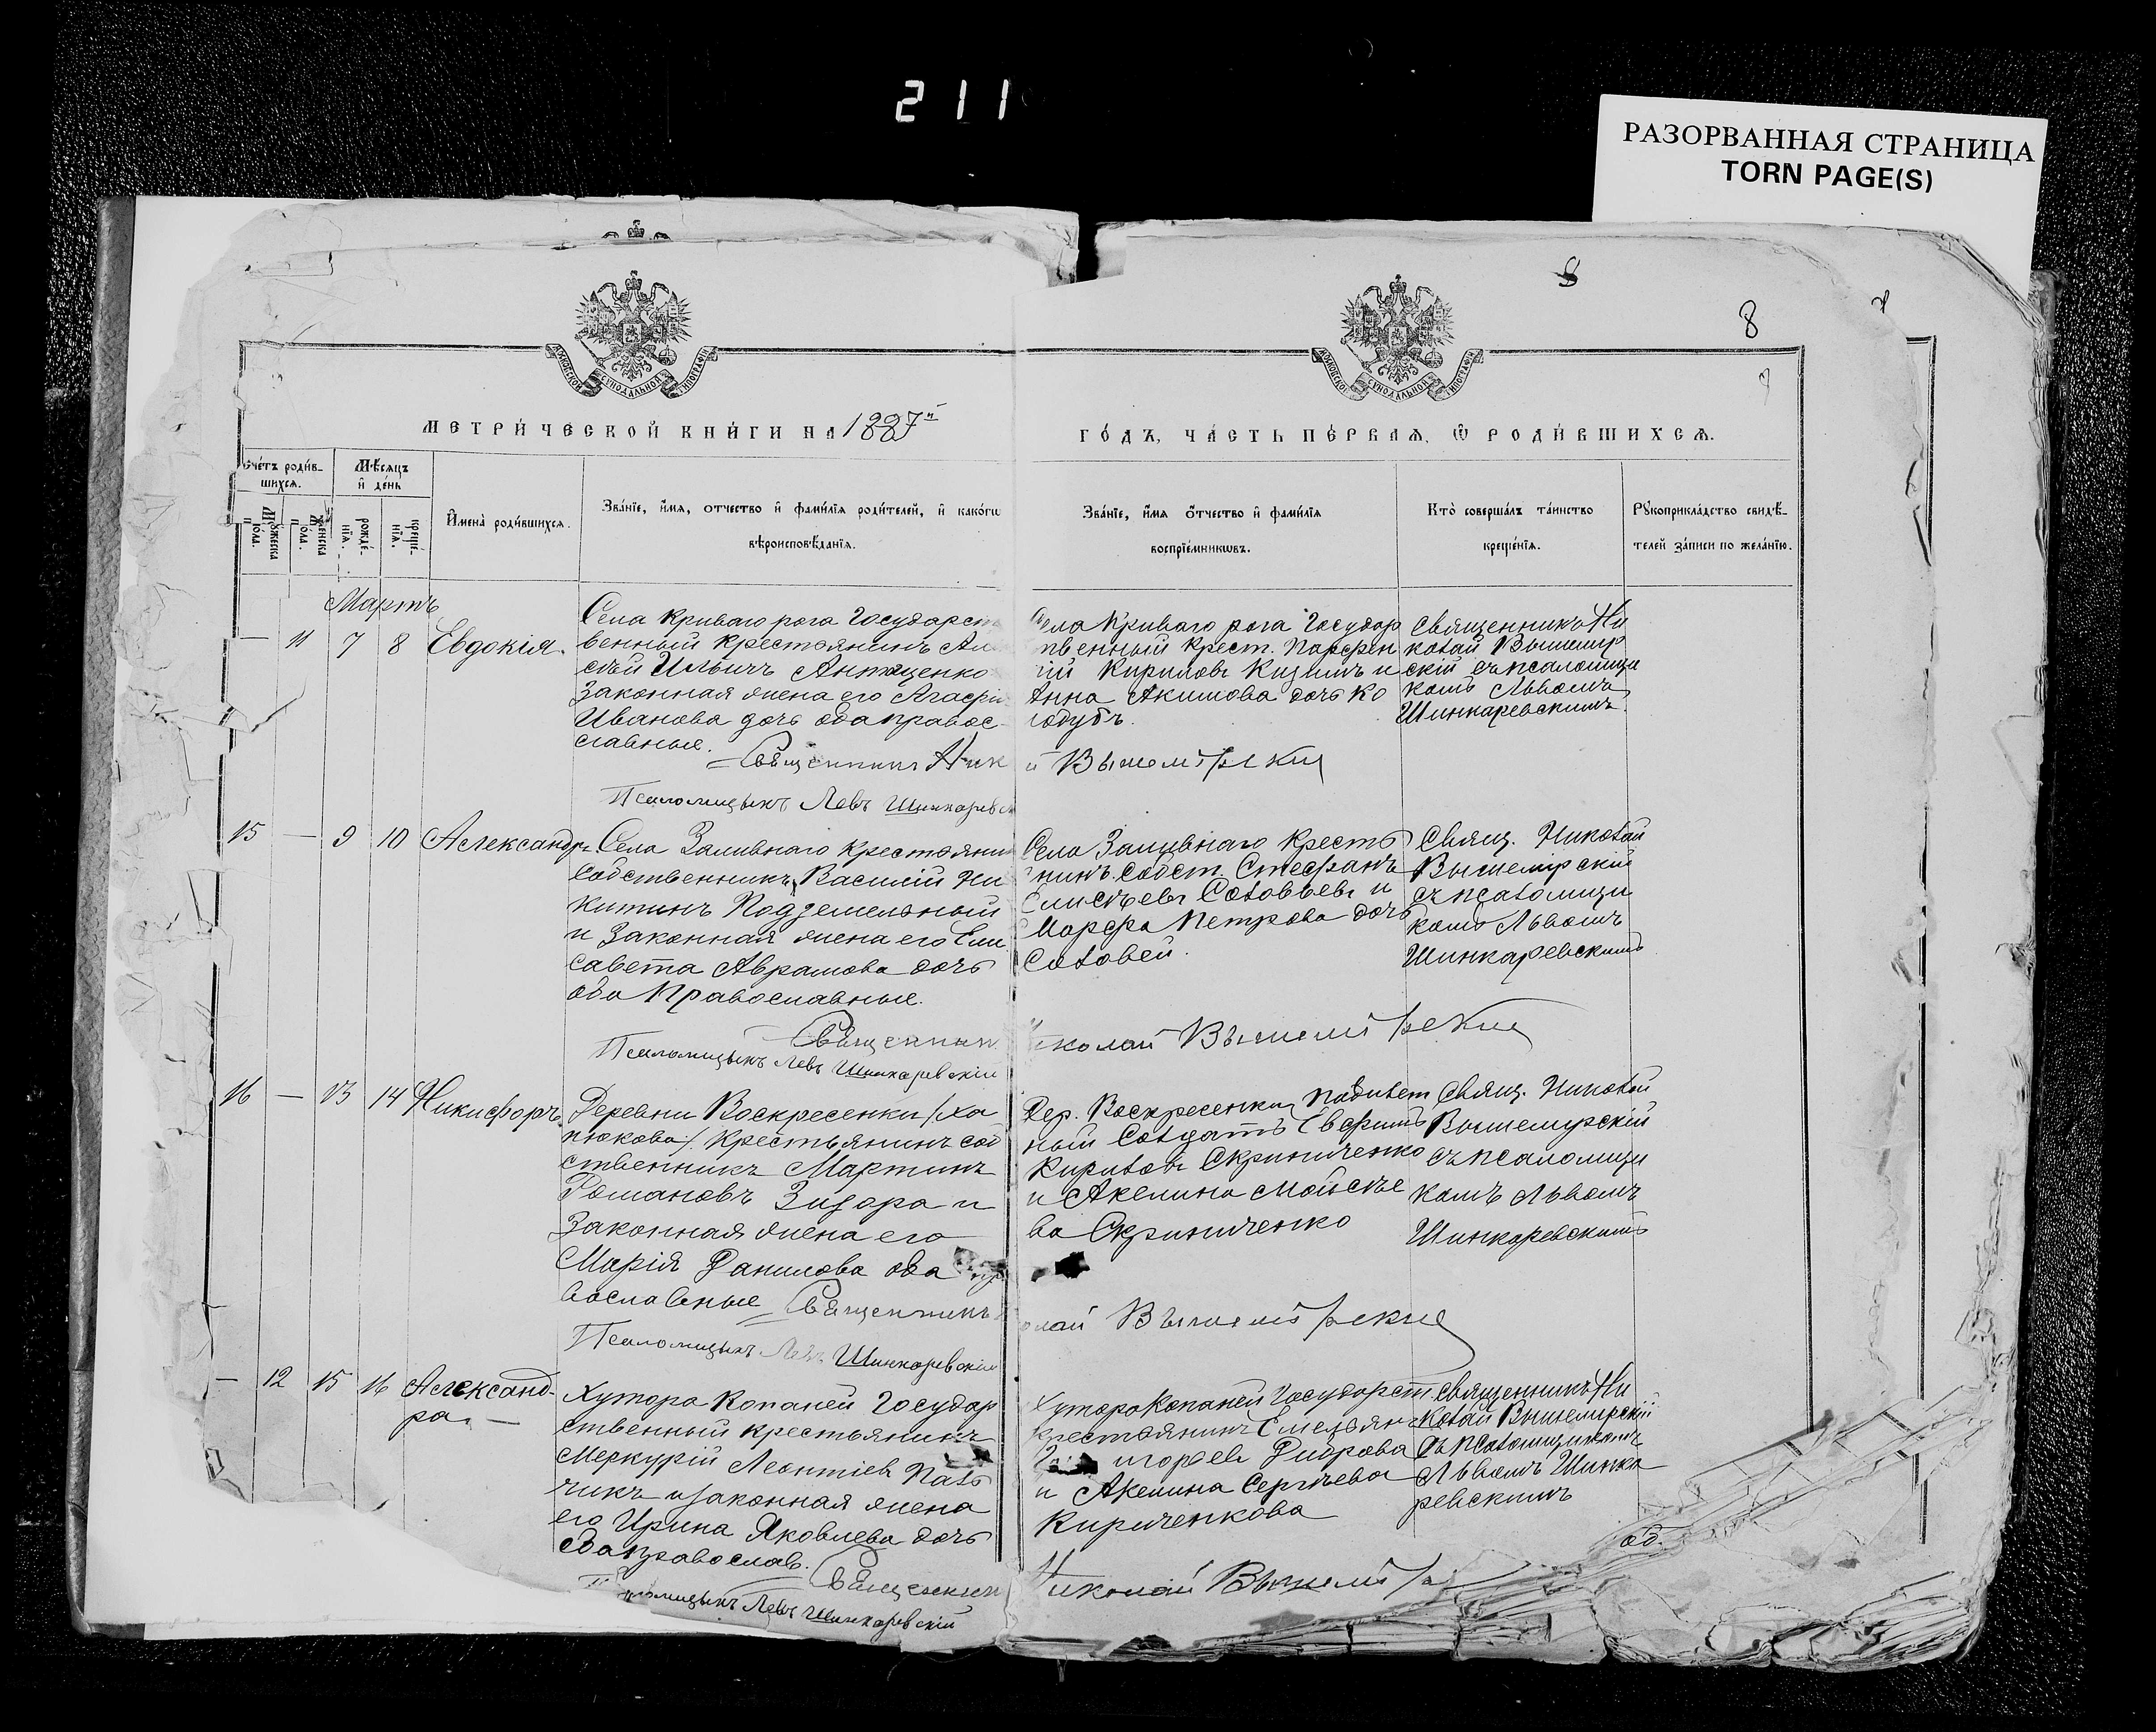 211
РАЗОРВАННАЯ СТРАНИЦА
TORN PAGE(S)
8
8
МОСКОВСКОЙ СѴНОДАЛЬНОЙ ТИПОГРАФІИ
МОСКОВСКОЙ СѴНОДАЛЬНОЙ ТИПОГРАФІИ
МЕТРИЧЕСКОЙ КНИГИ НА 1887й
ГОДЪ, ЧАСТЬ ПЕРВАЯ, Ѡ РОДИВШИХСЯ.
Счетъ родив-
шихся.
Мѣсяцъ
и день
Мужеска
пола.
Женска
пола.
рожде-
нія.
креще-
нія.
Имена родившихся.
Званіе, имя, отчество и фамилія родителей, и какогѡ
вѣроисповѣданія.
Званіе, имя отчество и фамилія
воспріемникѡвъ.
Кто совершалъ таинство
крещенія.
Рукоприкладство свидѣ-
телей записи по желанію.
Мартъ
— 11 7 8 Евдокія.
Села Криваго рога Государст
венный крестьянинъ
сѣй Ильичъ Антащенко
Законная жена его Агафі
Иванова дочь оба правос-
славные.
Священникъ Ник
Псаломщикъ Левъ Шинкаревс
Села Криваго рога Государ
твенный Крест. Парфен
тій Кириловъ Кизимъ и
Анна Акимова дочь Ко
лодубъ.
й Вышемірскій
Священникъ Ни
колай Вышемир
скій съ псаломщи
комъ Львомъ
Шинкаревскимъ
15 — 9 10 Александръ.
Села Заливнаго крестьянин
Собственникъ Василій Ни
китинъ Подземельный
и Законная жена его Ели
савета Аврамова дочь
оба Православные.
Священник
Псаломщикъ Левъ Шинкаревскій
Села Заливнаго Кресть
нинъ собст. Стефанъ
Елисѣевъ Соловьевъ и
Марфа Петрова дочь
Соловей.
иколай Вышемірскій
Свящ. Николай
Вышемирскій
съ псаломщи
комъ Львомъ
Шинкаревскимъ
16 — 13 14 Никифоръ
Деревни Воскресенки /Ха
пюкова/ Крестьянинъ соб
ственникъ Мартинъ
Романовъ Зизора и
Законная жена его
Марія Данилова оба пр
вославные Священникъ
Псаломщикъ Левъ Шинкаревскій
Дер. Воскресенки
ный Солдатъ Евфимъ
Кириловъ Скрипиченко
и Акелина Мойсѣе
ва Скрипиченко
олай Вышемірскій
Свящ. Николай
Вышемирскій
съ псаломщи
комъ Львомъ
Шинкаревскимъ
— 12 15 16 Александ-
ра. —
Хутора Копаней Государ
ственный крестьянинъ
Меркурій Леонтіевъ Паль
чикъ и законная жена
его Ирина Яковлева дочь
оба православ. Священник
Псаломщикъ Левъ Шинкаревскій
Хутора Копаней Государст
крестьянинъ Емельян
игорьевъ
и Акелина Сергѣева
Кириченкова
Николай Вышемір
Священникъ Ни
колай Вышемирскій
съ псаломщикомъ
Львомъ Шинка
ревскимъ
об.